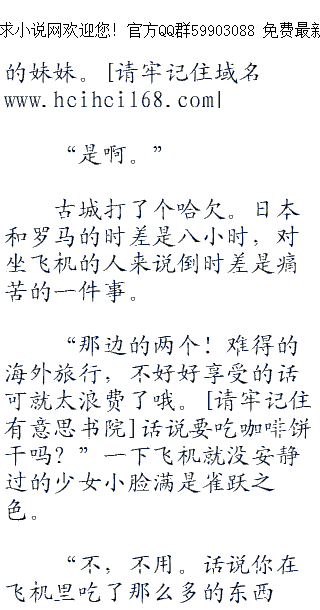 求小说网欢迎您! 官方QQ群59903088 免费最新
的妹妹。[请牢记住域名
www.hcihci168.com|
“是啊。”
古城打了个哈欠。日本
和罗马的时差是八小时，对
坐飞机的人来说倒时差是痛
苦的一件事。
“那边的两个！难得的
海外旅行，不好好享受的话
可就太浪费了哦。[请牢记住
有意思书院]话说要吃咖啡饼
干吗？”一下飞机就没安静
过的少女小脸满是雀跃之
色。
“不，不用。话说你在
飞机里吃了那么多的东西